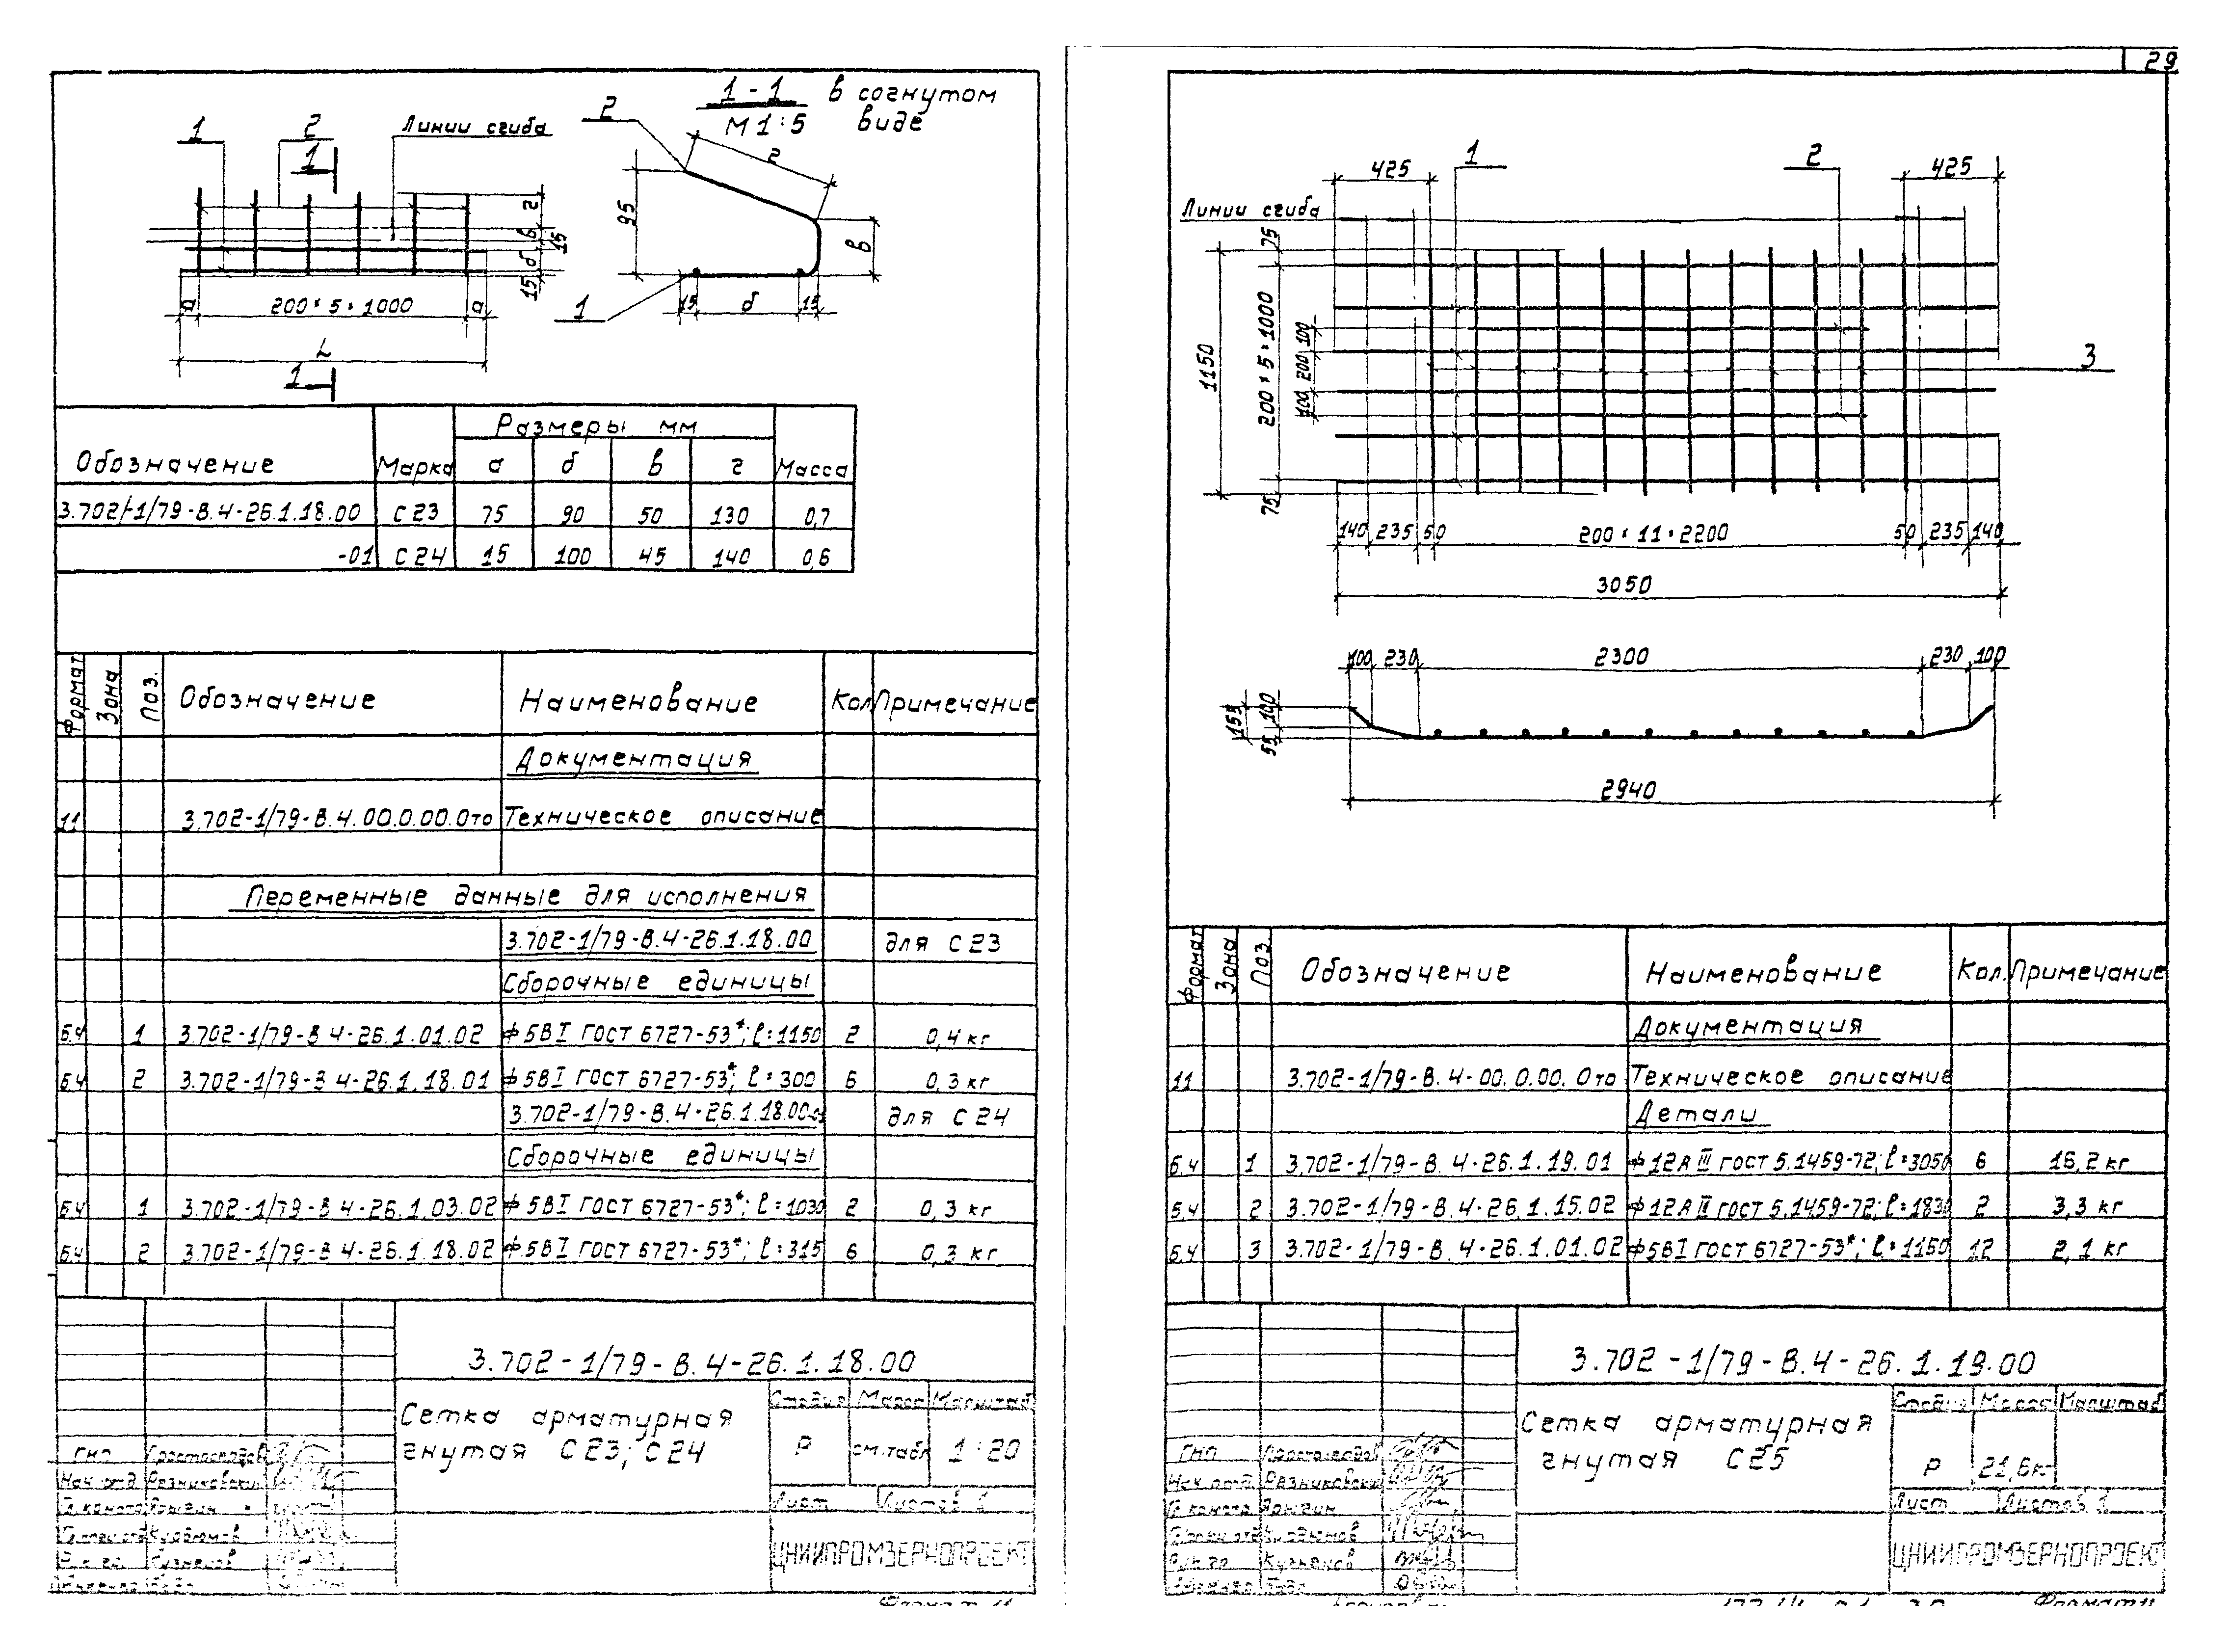 29
1-1 в согнутом
М 1:5 виде
1 2 Линии сгиба 2
1
г
95
в
г
в
15
б
15
а 200×5=1000 а
L
1
1
15 б 15
Обозначение Марка Размеры мм Масса
а б в г
3.702-1/79-В.4-26.1.18.00 С23 75 90 50 130 0,7
-01 С24 15 100 45 140 0,6
Формат Зона Поз. Обозначение Наименование Кол Примечание
Документация
11 3.702-1/79-В.4.00.0.00.0то Техническое описание
Переменные данные для исполнения
3.702-1/79-В.4-26.1.18.00 для С23
Сборочные единицы
Б.4 1 3.702-1/79-В 4-26.1.01.02 ф5ВI ГОСТ 6727-53*; ℓ=1150 2 0,4 кг
Б.4 2 3.702-1/79-В 4-26.1.18.01 ф5ВI ГОСТ 6727-53*; ℓ=300 6 0,3 кг
3.702-1/79-В.4-26.1.18.00-01 для С24
Сборочные единицы
Б.4 1 3.702-1/79-В 4-26.1.03.02 ф5ВI ГОСТ 6727-53*; ℓ=1030 2 0,3 кг
Б.4 2 3.702-1/79-В 4-26.1.18.02 ф5ВI ГОСТ 6727-53*; ℓ=315 6 0,3 кг
3.702-1/79-В.4-26.1.18.00
Сетка арматурная
гнутая С23; С24
Стадия Масса Масштаб
Р см.табл 1:20
Лист Листов 1
ГИП
Нач.отд. Резниковский
ЦНИИПРОМЗЕРНОПРОЕКТ
425 1 2 425
Линии сгиба
75
1150
200×5=1000
100
200
100
75
3
140 235 50 200×11=2200 50 235 140
3050
100 230 2300 230 100
155
100
55
2940
Формат Зона Поз Обозначение Наименование Кол. Примечание
Документация
11 3.702-1/79-В.4-00.0.00.0то Техническое описание
Детали
Б.4 1 3.702-1/79-В.4-26.1.19.01 ф12АIII ГОСТ 5.1459-72; ℓ=3050 6 16,2 кг
Б.4 2 3.702-1/79-В.4-26.1.15.02 ф12АIII ГОСТ 5.1459-72; ℓ=1830 2 3,3 кг
Б.4 3 3.702-1/79-В.4-26.1.01.02 ф5ВI ГОСТ 6727-53*; ℓ=1150 12 2,1 кг
3.702-1/79-В.4-26.1.19.00
Сетка арматурная
гнутая С25
Стадия Масса Масштаб
Р 21,6кг
Лист Листов 1
ГИП
Нач.отд. Резниковский
ЦНИИПРОМЗЕРНОПРОЕКТ
Формат 11